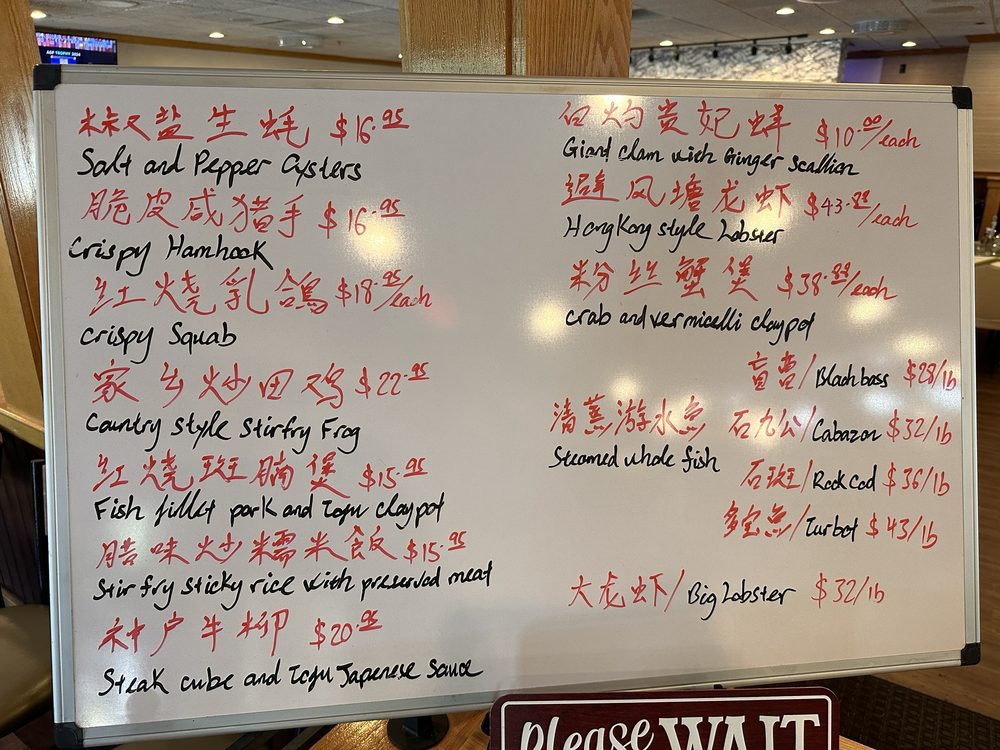 椒盐生蚝 $16.95
Salt and Pepper Oysters
脆皮咸猪手 $16.95
Crispy Hamhook
红烧乳鸽 $18.95/each
Crispy Squab
家乡炒田鸡 $22.95
Country Style Stirfry Frog
红烧斑腩煲 $15.95
Fish fillet pork and Tofu claypot
腊味炒糯米飯 $15.95
Stir fry sticky rice with preserved meat
神户牛柳 $20.95
Steak cube and Tofu Japenese Sauce
白灼贵妃蚌 $10.00/each
Giand clam with Ginger Scallion
避风塘龙虾 $43.88/each
HongKong style Lobster
粉丝蟹煲 $38.88/each
crab and vermicelli claypot
盲曹/Blachbass $28/lb
清蒸游水魚 石九公/Cabazon $32/lb
Steamed whole fish
石斑/RockCod $36/lb
多宝魚/Turbot $43/lb
大龙虾/Big Lobster $32/lb
AGF TROPHY 2024
Please WAIT